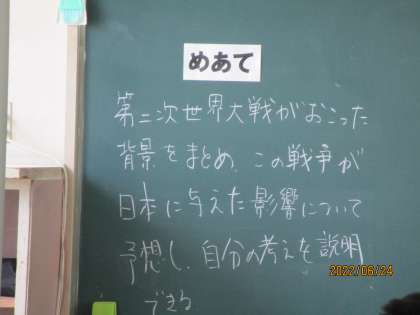 めあて
第二次世界大戦がおこった
背景をまとめ、この戦争が
日本に与えた影響について
予想し、自分の考えを説明
できる
2022/06/24